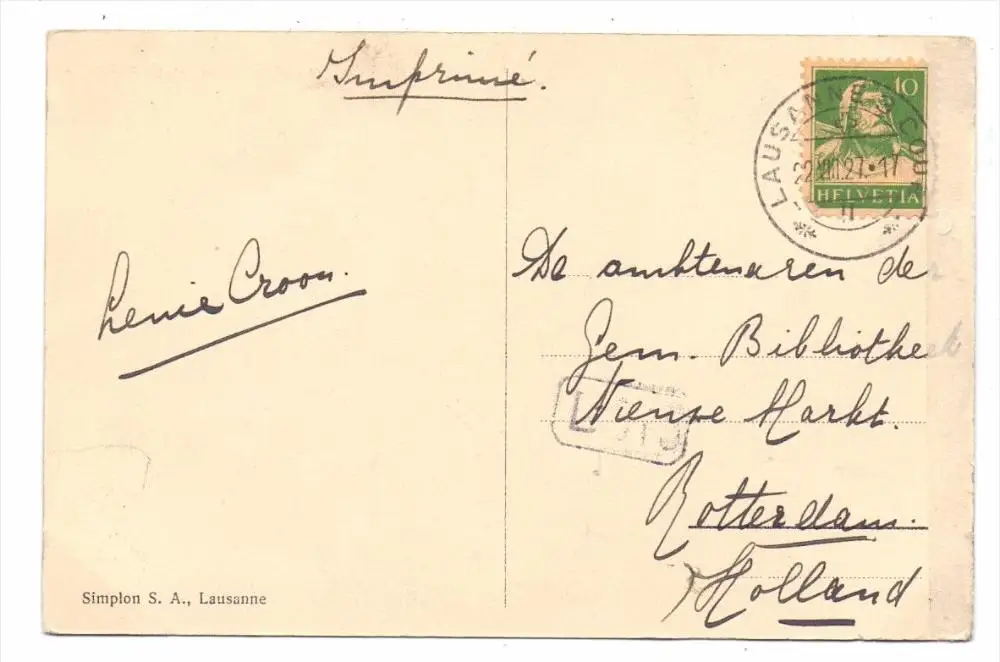 Imprimé.
10
LAUSANNE
27·17
HELVETIA
Lenie Croon.
De ambtenaren der
Gem. Bibliotheek
Nieuwe Markt.
Rotterdam.
Holland
Simplon S. A., Lausanne